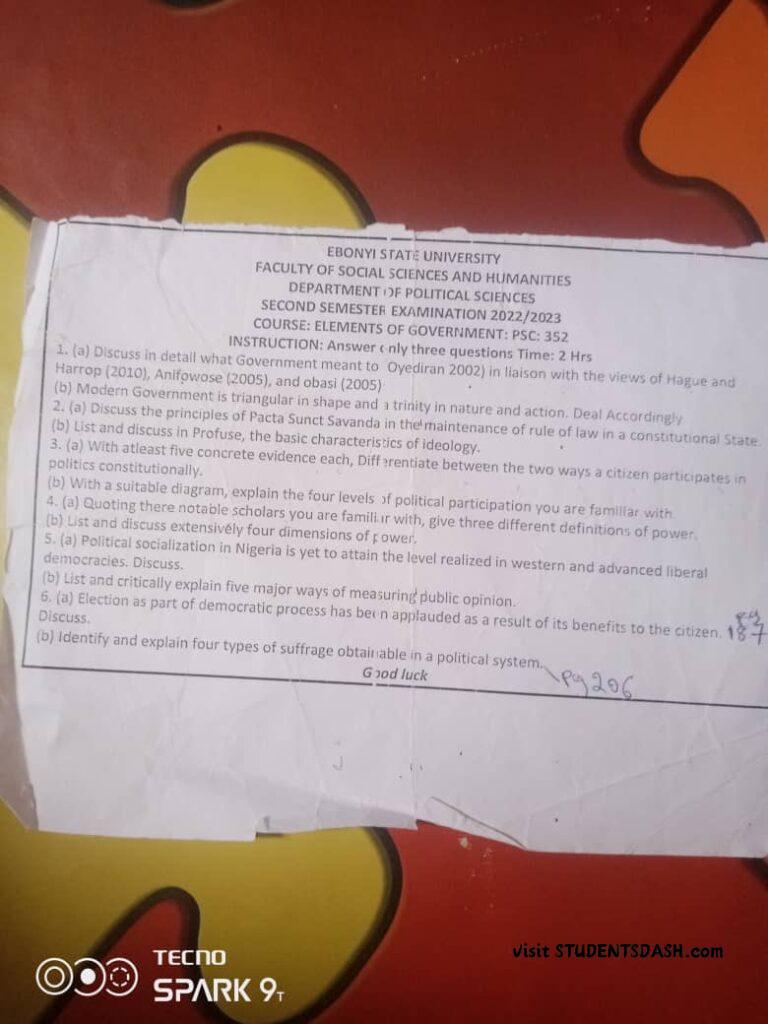 EBONYI STATE UNIVERSITY
FACULTY OF SOCIAL SCIENCES AND HUMANITIES
DEPARTMENT OF POLITICAL SCIENCES
SECOND SEMESTER EXAMINATION 2022/2023
COURSE: ELEMENTS OF GOVERNMENT: PSC: 352
INSTRUCTION: Answer only three questions Time: 2 Hrs
1. (a) Discuss in detail what Government meant to Oyediran 2002) in liaison with the views of Hague and
Harrop (2010), Anifowose (2005), and obasi (2005)
(b) Modern Government is triangular in shape and a trinity in nature and action. Deal Accordingly
2. (a) Discuss the principles of Pacta Sunct Savanda in the maintenance of rule of law in a constitutional State.
(b) List and discuss in Profuse, the basic characteristics of ideology.
3. (a) With atleast five concrete evidence each, Differentiate between the two ways a citizen participates in
politics constitutionally.
(b) With a suitable diagram, explain the four levels of political participation you are familiar with.
4. (a) Quoting there notable scholars you are familiar with, give three different definitions of power.
(b) List and discuss extensively four dimensions of power.
5. (a) Political socialization in Nigeria is yet to attain the level realized in western and advanced liberal
democracies. Discuss.
(b) List and critically explain five major ways of measuring public opinion.
6. (a) Election as part of democratic process has been applauded as a result of its benefits to the citizen.
Discuss.
pg
187
(b) Identify and explain four types of suffrage obtainable in a political system.
pg 206
Good luck
visit STUDENTSDASH.com
TECNO
SPARK 9T